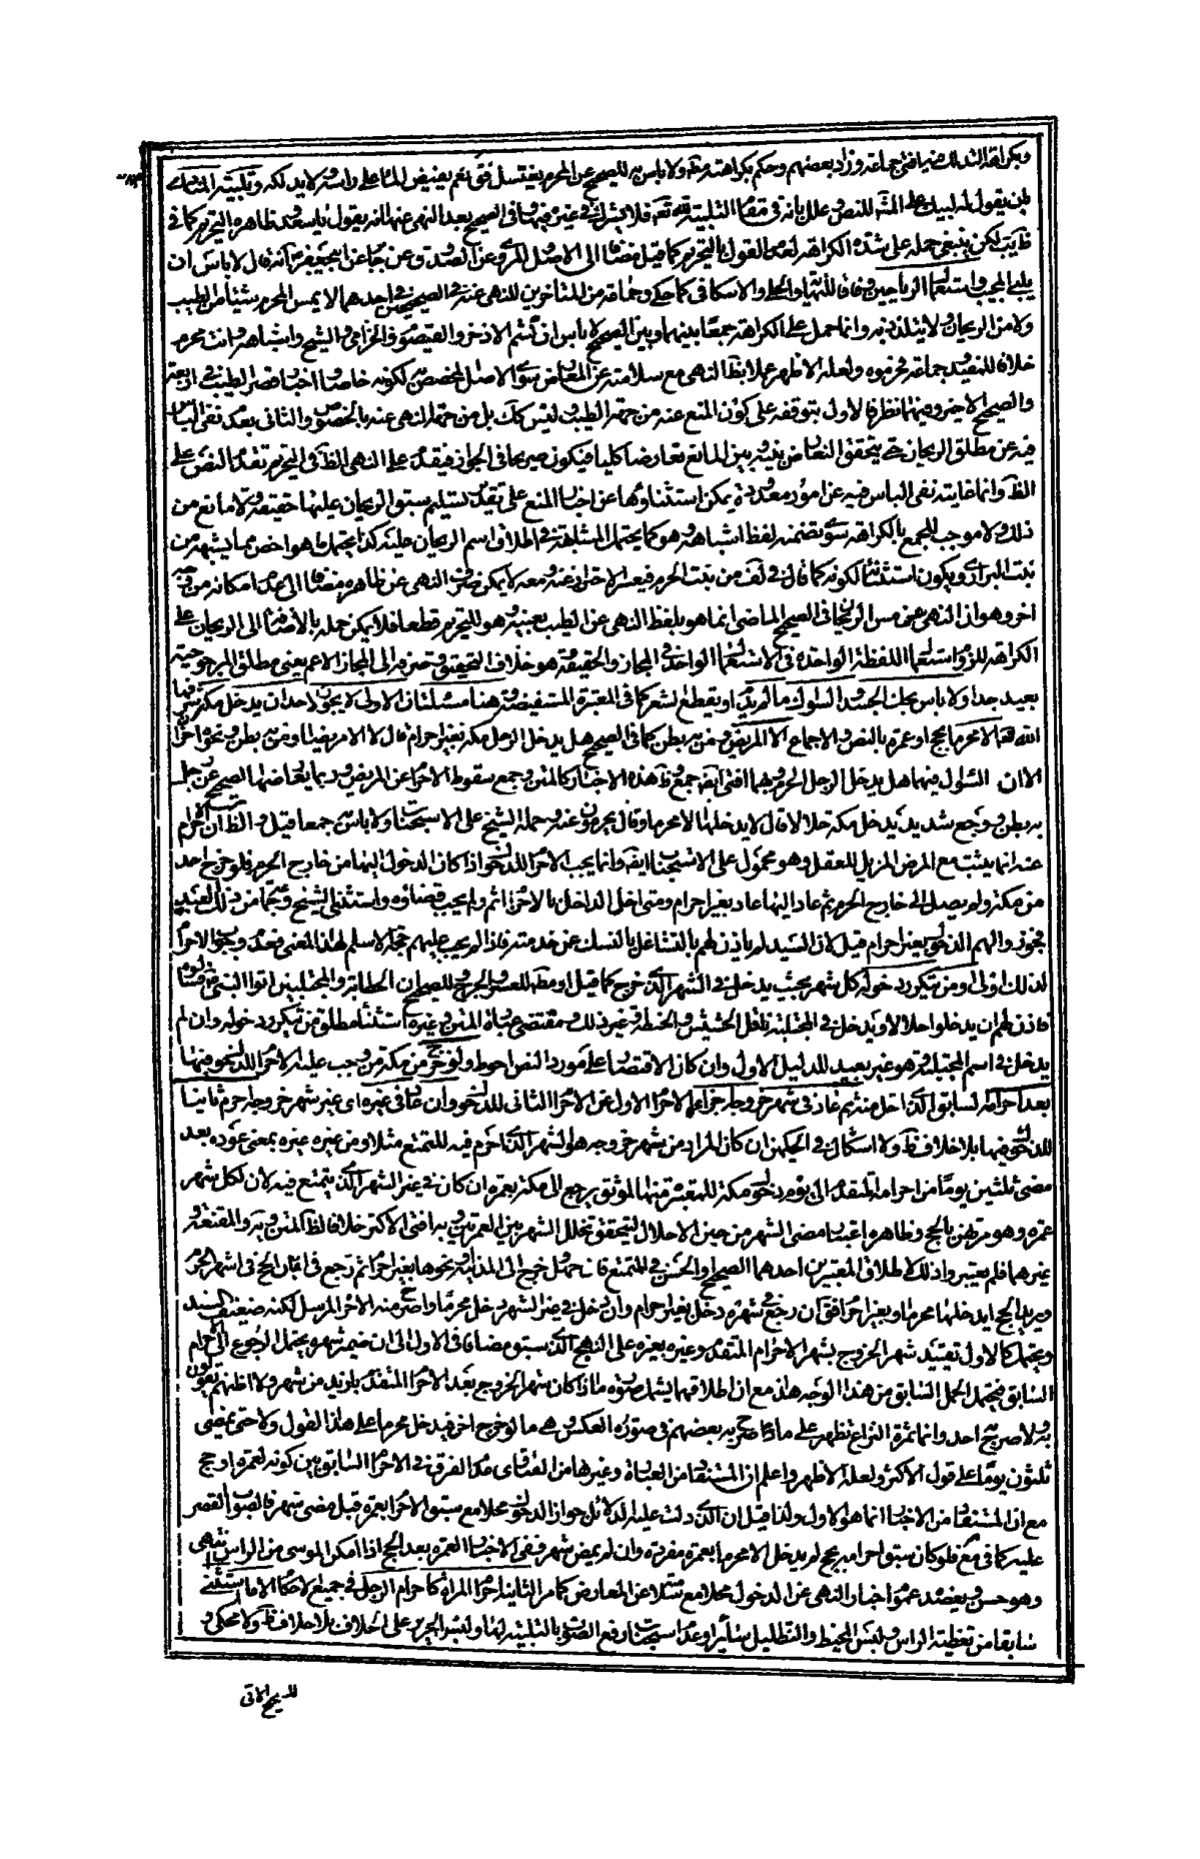 وبكراهة التدلك فيه افتى جماعة وزاد بعضهم وحكم بكراهته ولا باس به للصحيح عن المحرم يغتسل فق نعم يفيض الماء على راسه ولا يدلكه وتلبية المنادى
بان يقول له لبيك على المشهور للنص وعلل بانه في مقام التلبية لله تعالى فلا يشرك غيره فيها وفي الصحيح بعد النهي عنها انه يقول يا سعد وظاهره التحريم كما في
يب لكن ينبغي حمله على شدة الكراهة لعدم القول بالتحريم كما قيل مضافا الى الاصل المروي عن الصدوق عن جابر عن ابي جعفر انه قال لا باس ان
يلبي المجيب واستعمال الرياحين وفاقا للنهاية والحلي والاسكافي كما حكي وجماعة من المتاخرين للنهي عنه في الصحيحين في احدهما لا يمس المحرم شيئا من الطيب
ولا من الريحان ولا يتلذذ به وانما حمل على الكراهة جمعا بينهما وبين الصحيح لا باس ان تشم الاذخر والقيصوم والخزامى والشيح واشباهه وانت محرم
خلافا للمفيد وجماعة فحرموه ولعله الاظهر عملا بظاهر النهي مع سلامته عن المعارض سوى الاصل المخصص به لكونه خاصا واخبار حصر الطيب في اربعة
والصحيح الاخير وفيهما نظر فالاول بتوقفه على كون المنع عنه من جهة الطيب وليس كك بل من جهة النهي عنه بالخصوص والثاني بعدم نفي الباس
فيه عن مطلق الريحان حتى يتحقق التعارض بينه وبين المانع تعارضا كليا فيكون صريحا في الجواز فيقدم على النهي الظ في التحريم تقدم النص على
الظ وانما غايته نفي الباس فيه عن امور معدودة يمكن استثناؤها عن اخبار المنع على تقدير تسليم سبق الريحان عليها حقيقة ولا مانع من
ذلك ولا موجب للجمع بالكراهة سوى تضمنه لفظ اشباهه وهو كما يحتمل المشابهة في اطلاق اسم الريحان عليه كذا يحتمل ما هو اخص مما يشبهه من
نبت البراري ويكون استثناؤه لكونه كما قال في لف من نبت الحرم فيعسر الاحتراز عنه ومعه لا يمكن صرف النهي عن ظاهره مضافا الى عدم امكانه من وجه
اخر وهو ان النهي عن مس الريحان في الصحيح الماضي انما هو بلفظ النهي عن الطيب بعينه وهو للتحريم قطعا فلا يمكن حمله بالاضافة الى الريحان على
الكراهة للزوم استعمال اللفظة الواحدة في الاستعمال الواحد في المجاز والحقيقة وهو خلاف التحقيق وصرفه الى المجاز الاعم يعني مطلق المرجوحية
بعيد جدا ولا باس بحك الجسد والسواك ما لم يدم او يقطع الشعر كما في المعتبرة المستفيضة وهنا مسئلتان الاولى لا يجوز لاحد ان يدخل مكة شرفها
الله تعالى الا محرما بحج او عمرة بالنص والاجماع الا المريض ومن به بطن كما في الصحيح هل يدخل الرجل مكة بغير احرام قال لا الا مريضا او من به بطن ونحوه اخر
الا ان السؤال فيهما هل يدخل الرجل الحرم وبهما افتى ايضا جمع وظ هذه الاخبار كالمتن وجمع سقوط الاحرام عن المريض وربما يعارضها الصحيح عن رجل
به بطن ووجع شديد يدخل مكة حلالا قال لا يدخلها الا محرما وقال يحرمون عنه وحمله الشيخ على الاستحباب ولا باس به جمعا قيل والظ ان الاحرام
عنه انما يثبت مع المرض المزيل للعقل وهو محمول على الاستحباب ايضا وانما يجب الاحرام للدخول اذا كان الدخول اليها من خارج الحرم فلو خرج احد
من مكة ولم يصل الى خارج الحرم ثم عاد اليها عاد بغير احرام ومتى اخل الداخل بالاحرام اثم ولم يجب قضاؤه واستثنى الشيخ وجماعة من ذلك العبيد
فجوزوا لهم الدخول بغير احرام قيل لان السيد لم ياذن لهم بالتشاغل بالنسك عن خدمته فاذا لم يجب عليهم حجة الاسلام لهذا المعنى فعدم وجوب الاحرام
لذلك اولى او من تكرر دخوله كل شهر بحيث يدخل في الشهر الذي خرج كما قيل او مطلقا للعسر والحرج وللصحيح ان الحطابة والمجتلبة اتوا النبي فسالوه
فاذن لهم ان يدخلوا حلالا ويدخل في المجتلبة ناقل الحشيش والحنطة وغير ذلك ومقتضى عبارة المتن وغيره استثناء مطلق من تكرر دخوله وان لم
يدخل في اسم المجتلبة وهو غير بعيد للدليل الاول وان كان الاقتصار على مورد النص احوط ولو خرج من مكة من وجب عليه الاحرام للدخول فيها
بعد احرامه السابق الذي احل منه ثم عاد في شهر خروجه اجزاه الاحرام الاول عن الاحرام الثاني للدخول وان عاد في غيره اي غير شهر خروجه احرم ثانيا
للدخول فيها بلا خلاف ولا اشكال في الحكمين ان كان المراد من شهر خروجه هو الشهر الذي احرم فيه للتمتع مثلا ومن غيره غيره بمعنى عوده بعد
مضي ثلثين يوما من احرامه المتقدم الى يوم دخوله مكة للمعتبرة منها الموثق يرجع الى مكة بعمرة ان كان في غير الشهر الذي يتمتع فيه لان لكل شهر
عمرة وهو مرتهن بالحج وظاهره اعتبار مضي الشهر من حين الاحلال ليتحقق تخلل الشهر بين العمرتين وبه افتى الاكثر خلافا لظ المتن ويه والمقنعة و
غيرهما فلم يعتبروا ذلك لاطلاق المعتبرين احدهما الصحيح او الحسن في المتمتع فان جهل فخرج الى المدينة ونحوها بغير احرام ثم رجع في ابان الحج في اشهر الحج
ويريد الحج ايدخلها محرما او بغير احرام فق ان رجع في شهره دخل بغير احرام وان دخل في غير الشهر دخل محرما واصرح منه الاخر المرسل لكنه ضعيف السند
ويحتمل كالاول تقييد شهر الخروج بشهر الاحرام المتقدم وغيره بغيره على النهج الذي سبق مضافا في الاول الى ان ضمير شهره يحتمل الرجوع الى الاحرام
السابق فيحتمل الحمل السابق من هذا الوجه هذا مع ان اطلاقهما يشمل صورة ما اذا كان شهر الخروج بعد الاحرام المتقدم بازيد من شهر ولا اظنهم يقولون
به ولا صرح به احد وانما ثمرة النزاع تظهر على ما صرح به بعضهم في صورة العكس وهي ما لو خرج اخر فيدخل محرما على هذا القول ولا حتى يمضي
ثلثون يوما على قول الاكثر ولعله الاظهر واعلم ان المستفاد من العبارة وغيرها من الفتاوى عدم الفرق في الاحرام السابق بين كونه لعمرة او حج
مع ان المستفاد من الاخبار انما هو الاول ولذا قيل ان الذي دلت عليه الدلائل جواز الدخول محلا مع سبق الاحرام بعمرة قبل مضي شهر فالصواب القصر
عليه كما في فع فلو كان سبق احرامه بحج لم يدخل الا محرما بعمرة مفردة وان لم يمض شهر ففي الاخبار العمرة بعد الحج اذا امكن الموسى من الراس انتهى
وهو حسن ويعضده عموم اخبار النهي عن الدخول محلا مع سلامته عن المعارض كما مر الثانية احرام المراة كاحرام الرجل في جميع الاحكام الا ما استثنى
سابقا من تغطية الراس ولبس المخيط والتظليل سائرا وعدم استحباب رفع الصوت بالتلبية لها ولبس الحرير على الخلاف بلا خلاف ولا محكي
للصحيح الاتي